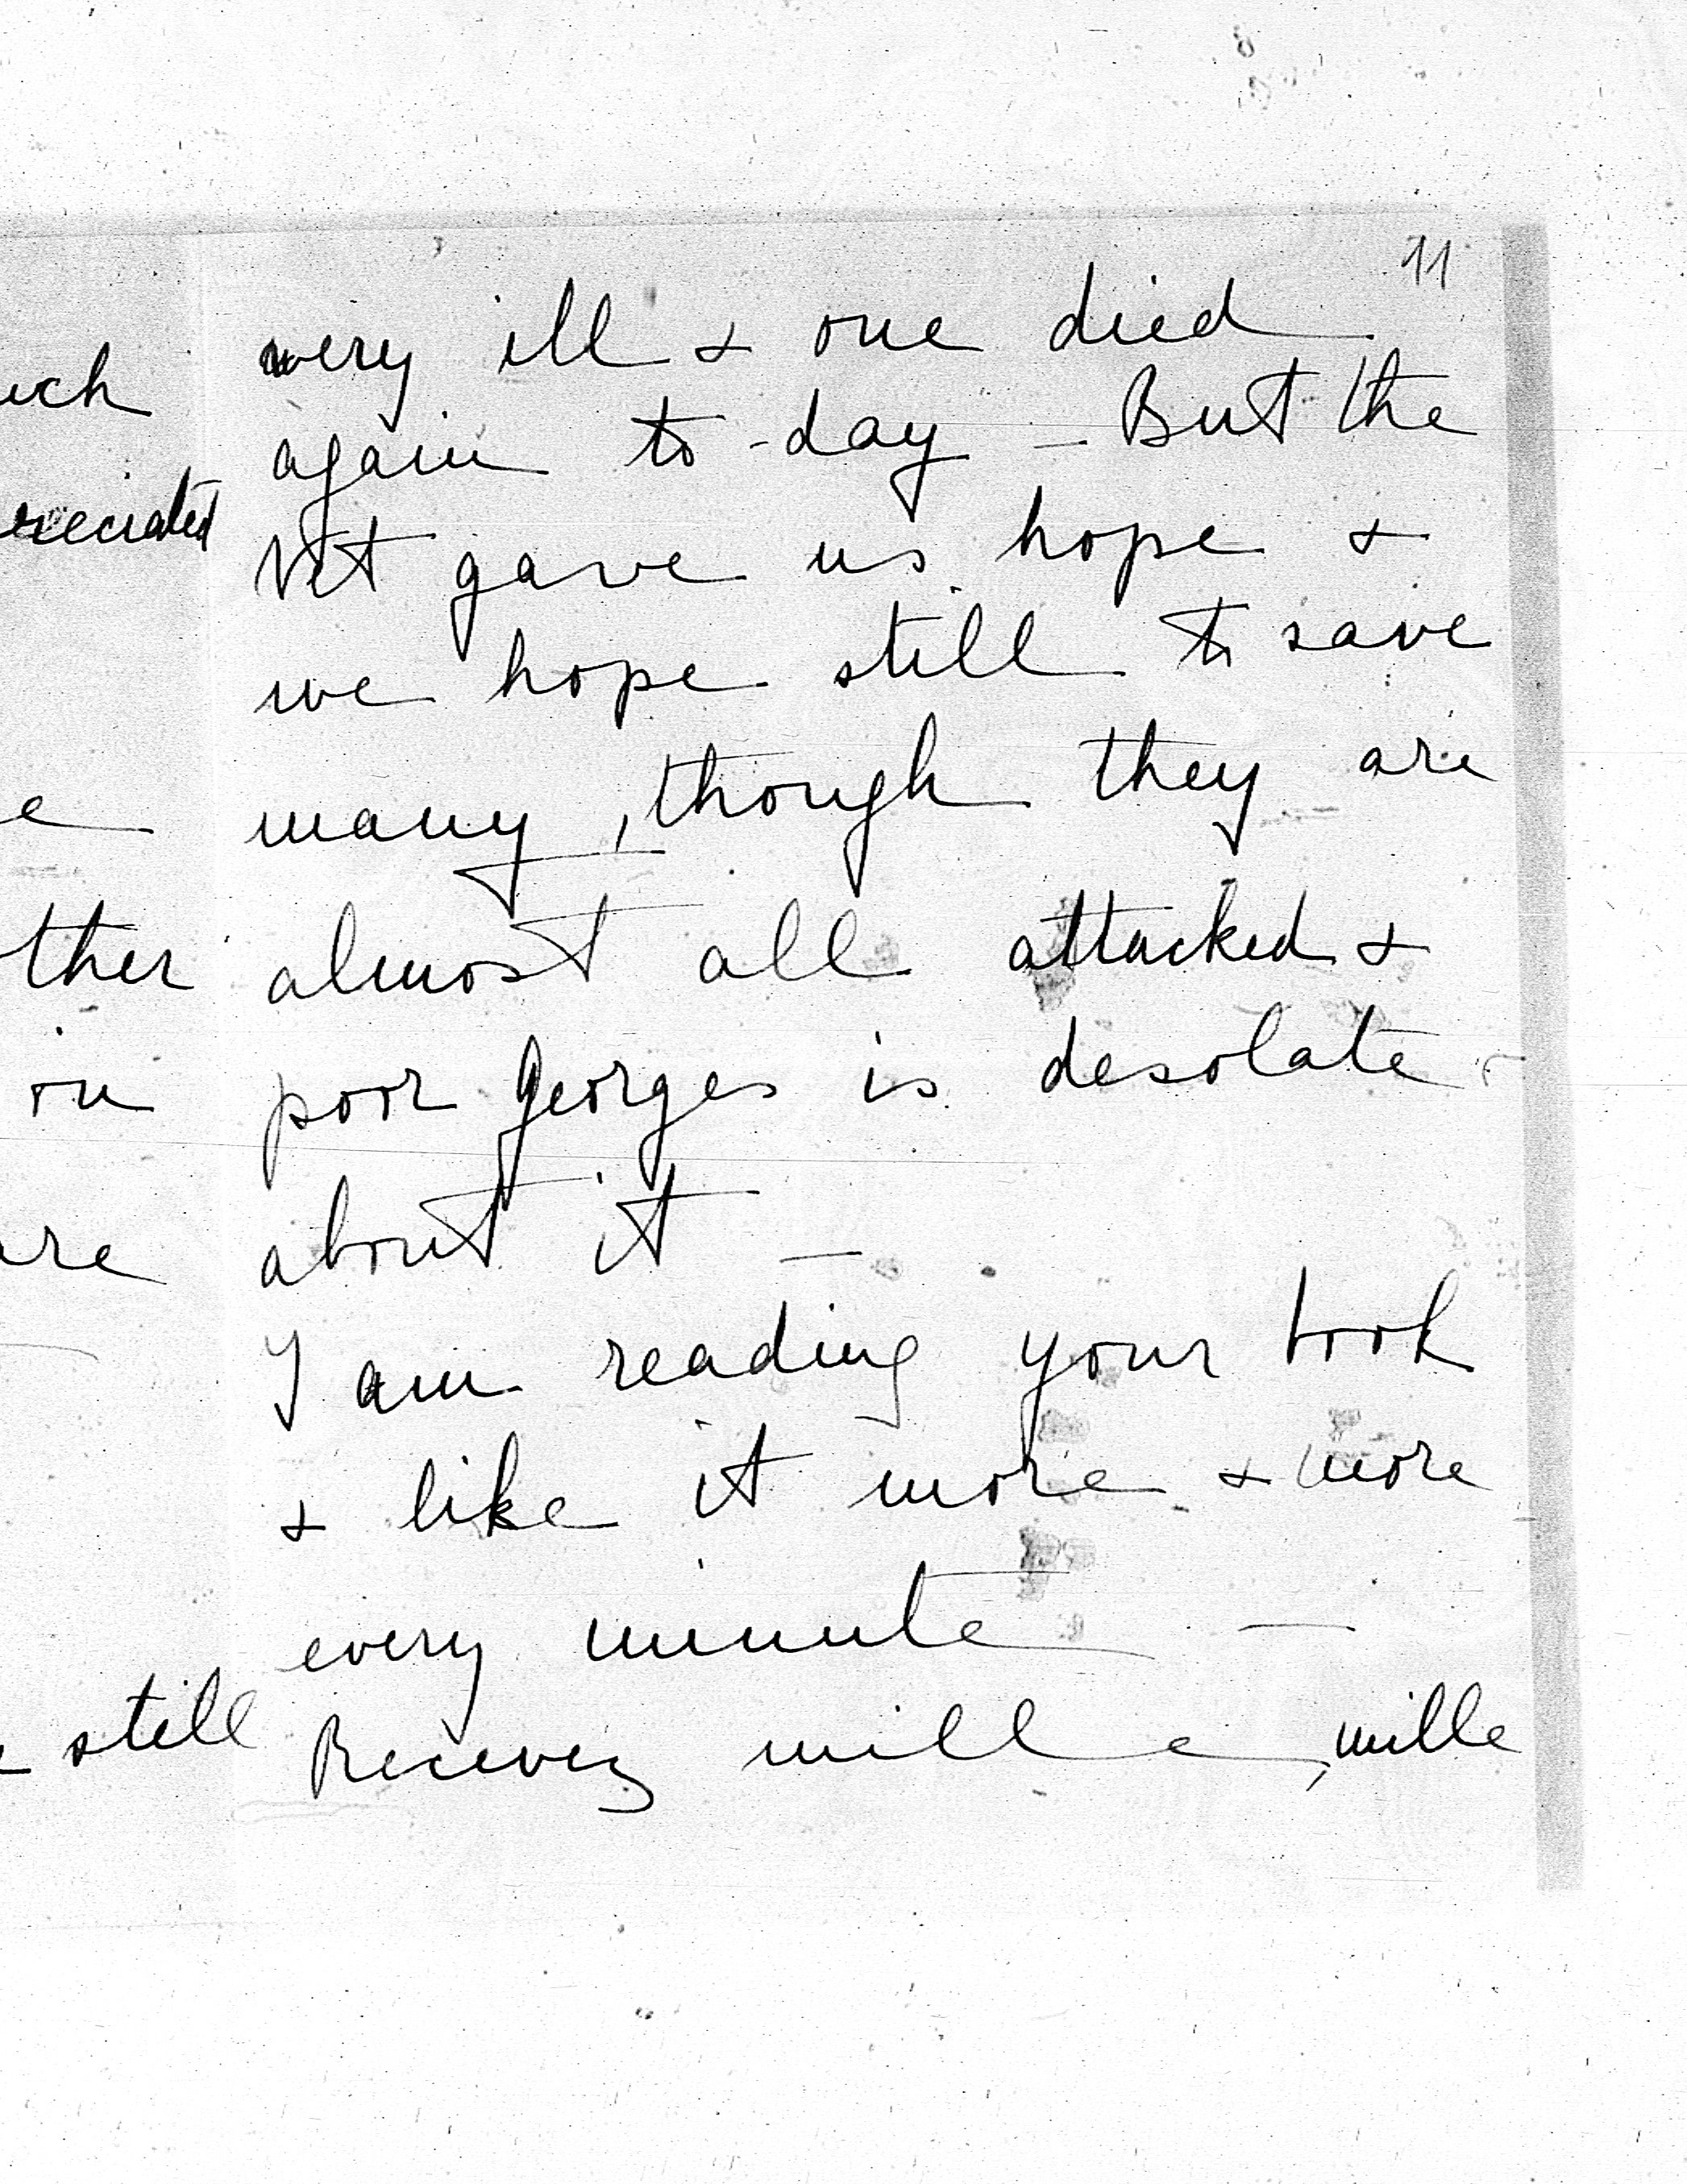 11
very ill & one died
again to-day - But the
Vet gave us hope &
we hope still to save
many, though they are
almost all attacked &
poor Georges is desolate
about it -
I am reading your book
& like it more & more
every minute -
Recevez mille, mille
ther
on
still